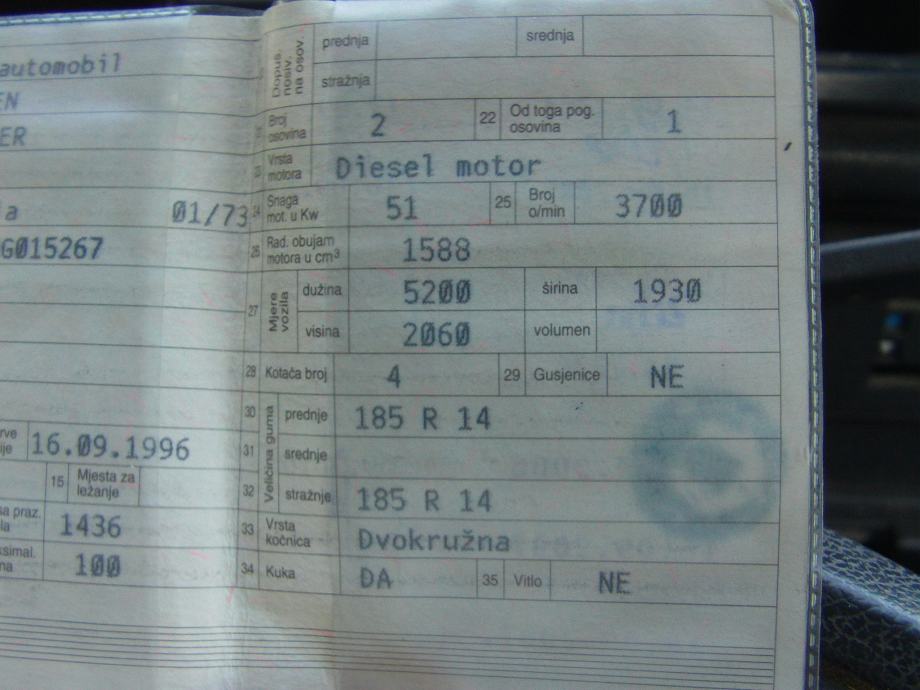 automobil
EN
ER
ia 01/73
G015267
rve 16.09.1996
ije
15 Mjesta za ležanje
sa praz. 1436
la
ksimal. 100
na
Dopuš. nosiv. na osov. prednja srednja
stražnja
Broj osovina 2 22 Od toga pog. osovina 1
Vrsta motora Diesel motor
24 Snaga mot. u Kw 51 25 Broj o/min 3700
26 Rad. obujam motora u cm³ 1588
27 Mjere vozila dužina 5200 širina 1930
visina 2060 volumen
28 Kotača broj 4 29 Gusjenice NE
30 Veličina guma prednje 185 R 14
31 srednje
32 stražnje 185 R 14
33 Vrsta kočnica Dvokružna
34 Kuka DA 35 Vitlo NE